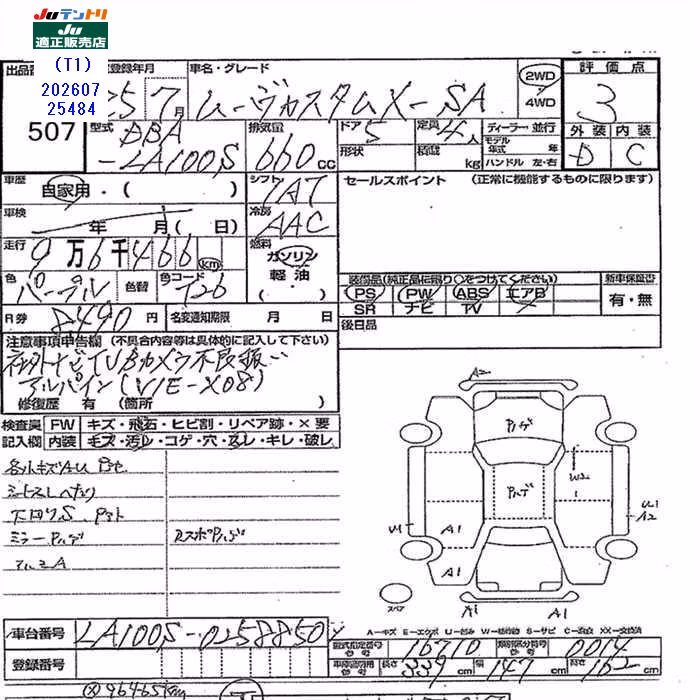 JU テントリ
JU
適正販売店
(T1)
202607
25484
出品番
登録年月
車名・グレード
評価点
507
25 7月
ムーヴカスタムX-SA
2WD
4WD
3
型式
DBA
-LA100S
排気量
660cc
ドア
5
形状
定員
4人
積載
kg
ディーラー・並行
モデル年式 年
ハンドル 左・右
外装 内装
D C
車歴
自家用・( )
シフト
IAT
セールスポイント (正常に機能するものに限ります)
車検
年 月( 日)
冷房
AAC
走行
9万6千466km
燃料
ガソリン
軽油
・( )
色
パープル
色替
色コード
T26
装備品(純正品に限り○をつけてください)
新車保証書
PS PW ABS エアB
SR ナビ TV
有・無
R券
8490円
名変通知期限 月 日
後日品
注意事項申告欄 (不具合内容等は具体的に記入して下さい)
社外ナビTVBカメラ不良扱い
アルパイン(VIE-X08)
修復歴 有 (箇所 )
検査員 FW キズ・飛石・ヒビ割・リペア跡・×要
記入欄 内装 キズ・汚レ・コゲ・穴・スレ・キレ・破レ
下回りS
ミラー
アルミA
A2
W2
A1
A1
スペア
A1
A1
車台番号
LA100S-0258850
登録番号
A-キズ E-エクボ U-凹み W-補修跡 S-サビ C-腐食 XX-交換済
型式指定番号
16710
類別区分番号
0014
長さ
339cm
幅
147cm
高さ
162cm